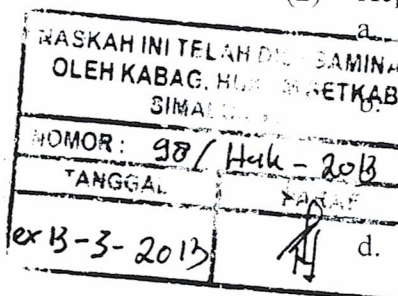 a.
NASKAH INI TELAH
OLEH KABAG. SETKAB
b.
NOMOR : 98 / Huk - 2013
TANGGAL PARAF
13-3-2013
d.